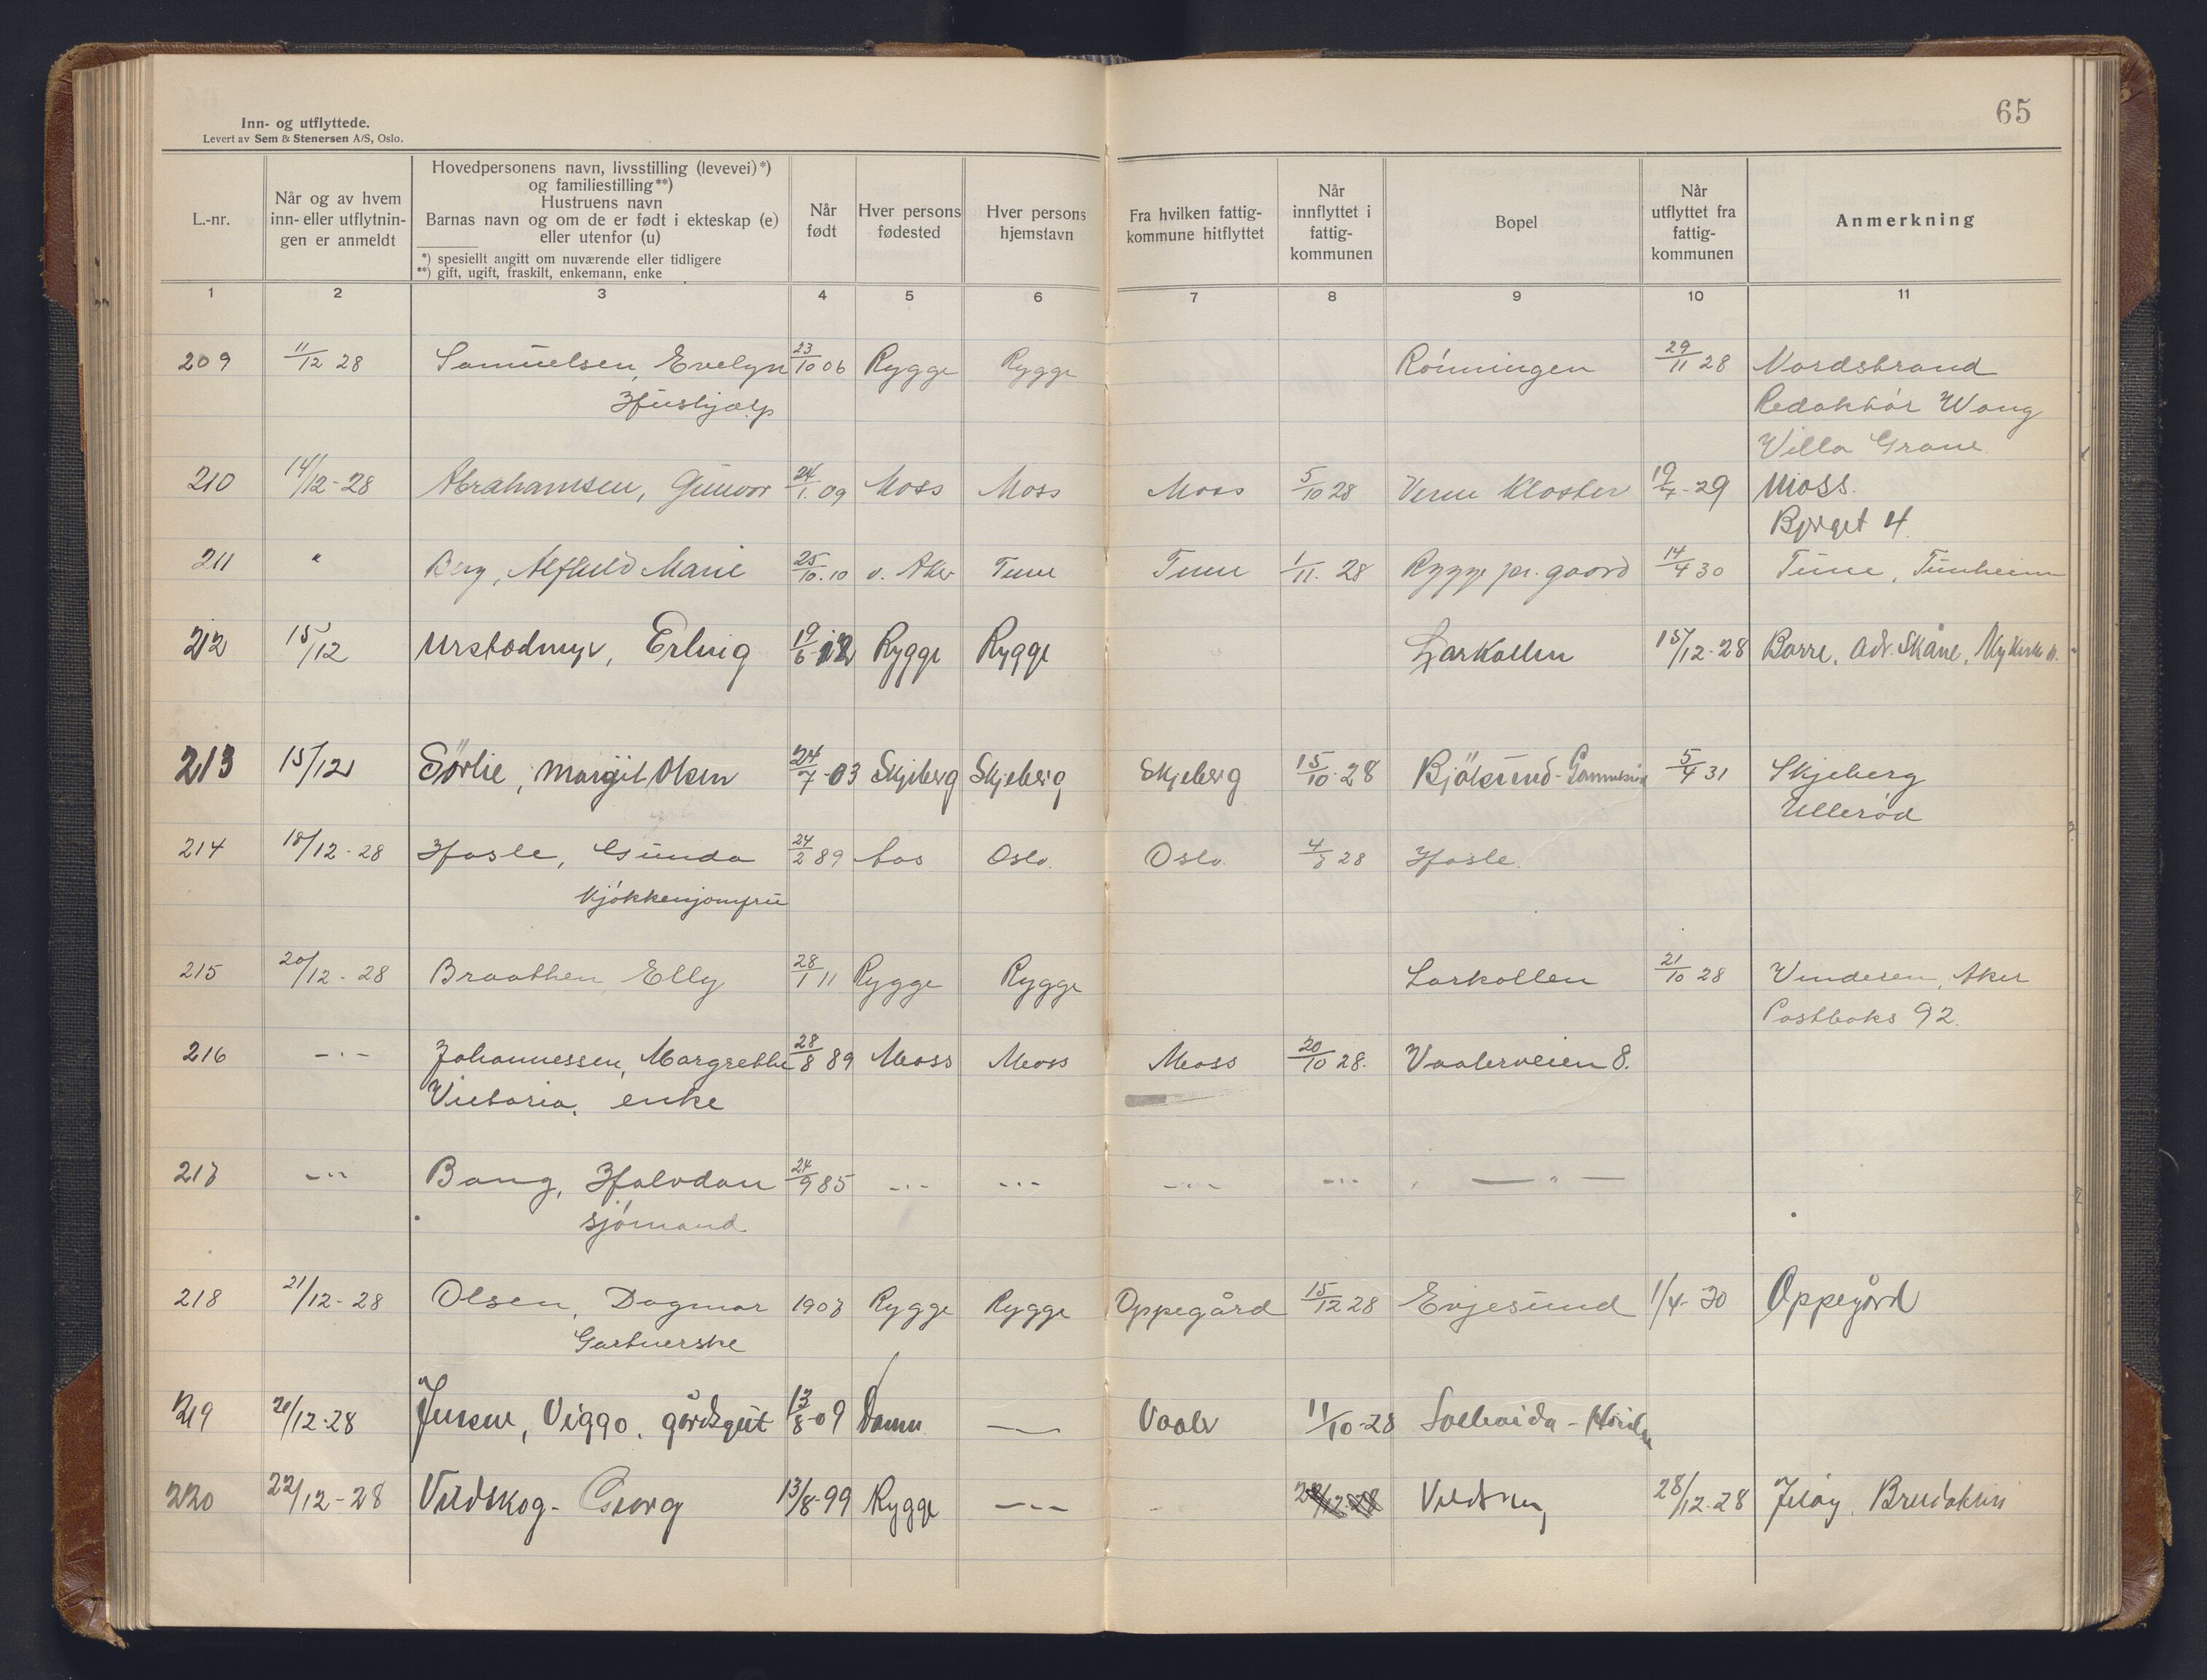 65
Inn- og utflyttede.
Levert av Sem & Stenersen A/S, Oslo.
L.-nr.
Når og av hvem inn- eller utflytnin- gen er anmeldt
Hovedpersonens navn, livsstilling (levevei)*)
og familiestilling**)
Hustruens navn
Barnas navn og om de er født i ekteskap (e)
eller utenfor (u)
*) spesiellt angitt om nuværende eller tidligere
**) gift, ugift, fraskilt, enkemann, enke
Når født
Hver persons fødested
Hver persons hjemstavn
Fra hvilken fattig- kommune hitflyttet
Når innflyttet i fattig- kommunen
Bopel
Når utflyttet fra fattig- kommunen
Anmerkning
1 2 3 4 5 6 7 8 9 10 11
209 11/12 28 Samuelsen, Evelyn 23/10 06 Rygge Rygge Rönningen 29/11 28 Nordstrand
Hushjælp Redaktör Wang
Villa Grane
210 14/12-28 Abrahamsen, Gunvor 24/1. 09 Moss Moss Moss 5/10 28 Verne Kloster 19/4-29 Moss.
Bjerget 4.
211 " Berg, Alfhild Marie 25/10.10 v. Aker Tune Tune 1/11. 28 Rygge pr. gaard 14/4 30 Tune, Tunheim
212 15/12 Urstadmyr, Erling 19/6 12 Rygge Rygge Larkollen 15/12-28 Borre, adr. Skåne,
213 15/12 Sörlie, Margit Olsen 24/7-03 Skjeberg Skjeberg Skjeberg 15/10-28 Bjölsund- 5/4 31 Skjeberg
Ulleröd
214 18/12-28 Hasle, Gunda 24/2 89 Aas Oslo. Oslo. 28 Hasle.
Kjökkenjomfru
215 20/12-28 Braathen Elly 28/1 11 Rygge Rygge Larkollen 21/10 28 Vinderen, Aker
Postboks 92.
216 -"- Johannessen, Margrethe 28/8 89 Moss Moss Moss 20/10 28. Vaalerveien 8.
Victoria, enke
217 -"- Bang, Halvdan 24/9 85 -"- -"- -"- -"- -"-
sjömand
218 21/12-28 Olsen, Dagmar 1907 Rygge Rygge Oppegård 15/12 28 Evjesund 1/4-30 Oppegård
Gartnerske
219 21/12-28 Jensen, Viggo, gårdsgut 13/8-09 Danm. — Vaaler 11/10-28 Solhaida -
220 22/12-28 Vildskog- Georg 13/8-99 Rygge -"- 28/12-28 Jelöy,